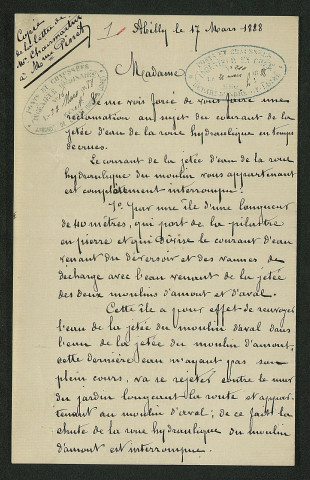 Copie
de la lettre de
Mr Chaumartin
à Mme Pérot
1
Abilly le 17 Mars 1888
Madame
Je me vois forcé de vous faire une
réclamation au sujet du courant de la
jetée d'eau de la roue hydraulique en temps
de crues.
Le courant de la jetée d'eau de la roue
hydraulique du moulin vous appartenant
est complètement interrompu :
1º. Par une île d'une longueur
de 40 mètres, qui part de la pilastre
en pierre et qui divise le courant d'eau
venant du déversoir et des vannes de
décharge avec l'eau venant de la jetée
des deux moulins d'amont et d'aval.
Cette île a pour effet de renvoyer
l'eau de la jetée du moulin d'aval dans
l'eau de la jetée du moulin d'amont,
cette dernière eau n'ayant pas son
plein cours, va se rejeter contre le mur
du jardin longeant la route et appar-
tenant au moulin d'aval ; de ce fait la
chute de la roue hydraulique du moulin
d'amont est interrompue.